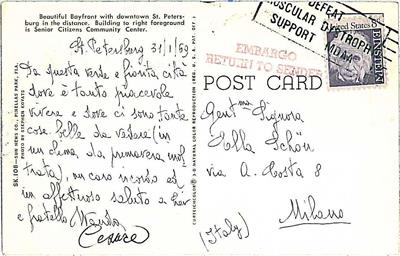 Beautiful Bayfront with downtown St. Peters-
burg in the distance. Building to right foreground
is Senior Citizens Community Center.
St. Petersburg 31/1/69
Da questa verde e fiorita città
dove è tanto piacevole
vivere e dove ci sono tante
cose belle da vedere (in
un clima da primavera inol
trata), un caro ricordo ed
un affettuoso saluto a Lei
e fratello Wanda
Cesare
POST CARD
DEFEAT
MUSCULAR DYSTROPHY
SUPPORT MDAA
United States 8c
EINSTEIN
EMBARGO
RETURN TO SENDER
Gent.ma Signora
Ella Schön
via A. Costa 8
Milano
(Italy)